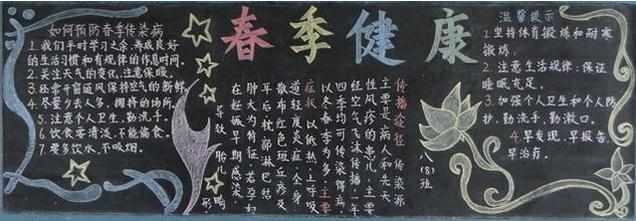 春季健康
如何预防春季传染病
1.我们平时学习之余,养成良好
的生活习惯和有规律的作息时间。
2.关注天气的变化,注意保暖。
3.经常开窗通风保持空气的新鲜
4.尽量少去人多,拥挤的场所。
5.注意个人卫生,勤洗手。
6.饮食要清淡,不能偏食。
7.要多饮水,不吸烟。
传播途径:传染源
主要是病人和先天
性风疹的患儿,主要
经空气飞沫传播,一年
四季均可传染得病,
以冬春季为多,主要
症状:以低热,上呼吸
道轻度炎症,全身
散布红色斑丘疹及
耳后枕部淋巴结
肿大为特征,若孕妇
在妊娠早期感染,
导致胎儿畸
形。
八(8)班
温馨提示
1.坚持体育锻炼和耐寒
锻炼。
2.注意生活规律:保证
睡眠充足。
3.加强个人卫生和个人防
护,勤洗手、勤漱口。
4.早发现、早报告、
早治疗。